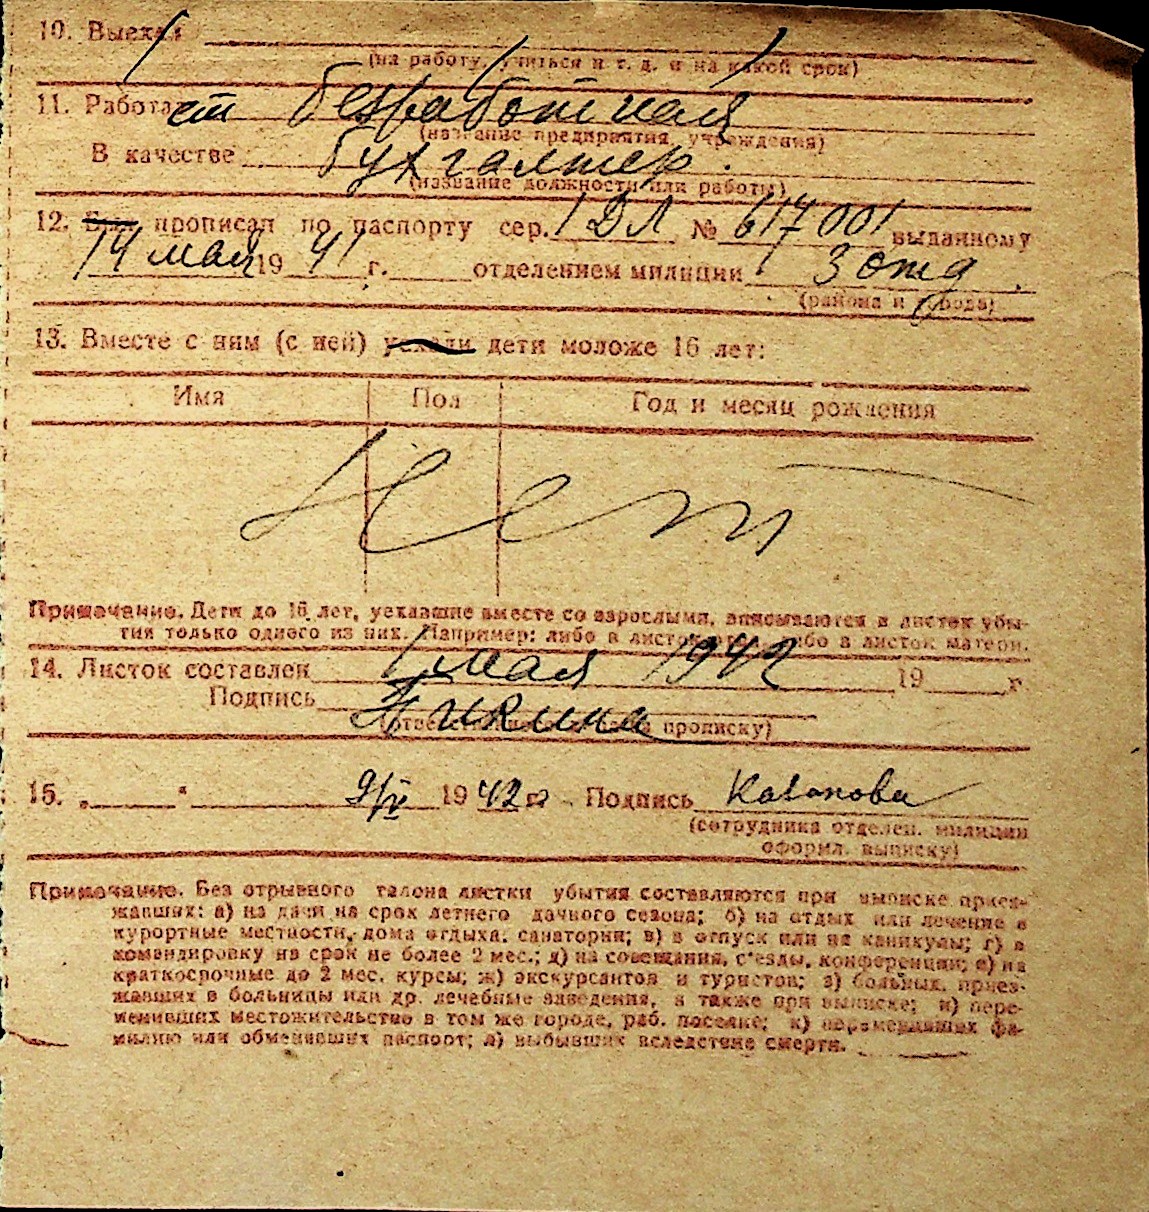 10. Выехал
(на работу, учиться и т. д. и на какой срок)
11. Работает безработная
(название предприятия, учреждения)
В качестве бухгалтер.
(название должности или работы)
12. Был прописан по паспорту сер. I ДЛ № 617001 выданному
14 мая 1941 г. отделением милиции 3 отд.
(района и города)
13. Вместе с ним (с ней) уехали дети моложе 16 лет:
Имя Пол Год и месяц рождения
Нет
Примечание. Дети до 16 лет, уехавшие вместе со взрослыми, вписываются в листок убы-
тия только одного из них. Например: либо в листок отца, либо в листок матери.
14. Листок составлен 1 мая 1942 19 г.
Подпись
прописку)
15. „ “ 9/V 1942 г. Подпись
(сотрудника отделен. милиции
оформл. выписку)
Примечание. Без отрывного талона листки убытия составляются при выписке приез-
жавших: а) на дачи на срок летнего дачного сезона; б) на отдых или лечение в
курортные местности, дома отдыха, санатории; в) в отпуск или на каникулы; г) в
командировку на срок не более 2 мес.; д) на совещания, с'езды, конференции; е) на
краткосрочные до 2 мес. курсы; ж) экскурсантов и туристов; з) больных, приез-
жавших в больницы или др. лечебные заведения, а также при выписке; и) пере-
менивших местожительство в том же городе, раб. поселке; к) переменивших фа-
милию или обменявших паспорт; л) выбывших вследствие смерти.